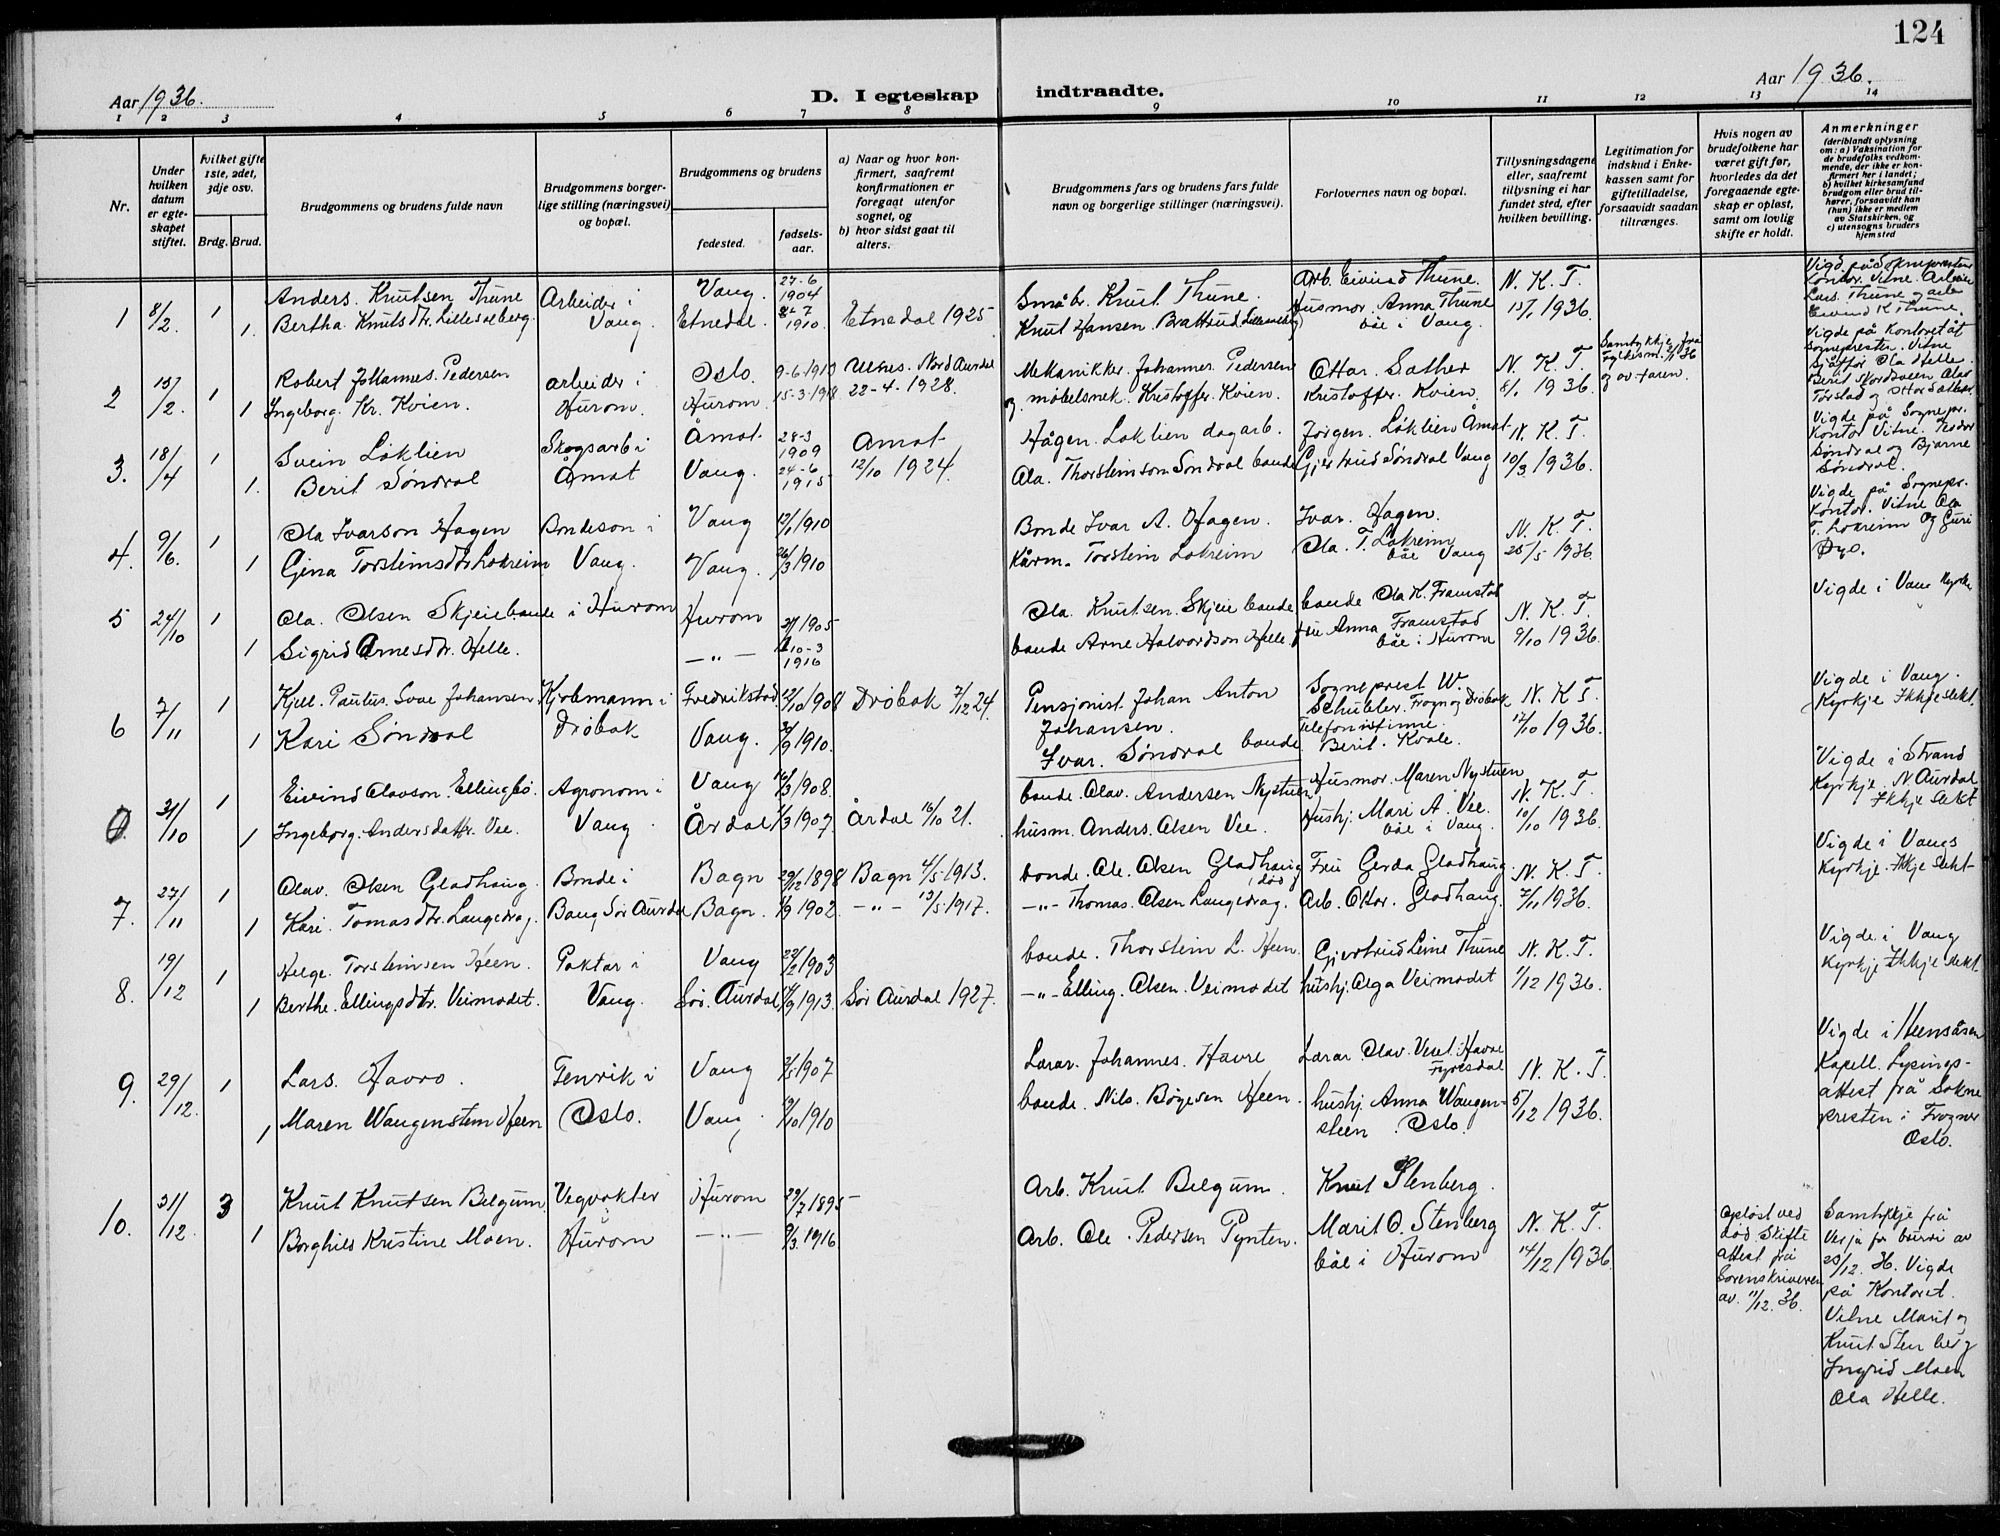 124
Aar 1936.
D. I egteskap indtraadte.
Aar 1936.
1 2 3 4 5 6 7 8 9 10 11 12 13 14
Nr.
Under hvilken datum er egteskapet stiftet.
hvilket gifte 1ste, 2det, 3dje osv.
Brdg. Brud.
Brudgommens og brudens fulde navn
Brudgommens borgerlige stilling (næringsvei) og bopæl.
Brudgommens og brudens
fødested.
fødselsaar.
a) Naar og hvor konfirmert, saafremt konfirmationen er foregaat utenfor sognet, og
b) hvor sidst gaat til alters.
Brudgommens fars og brudens fars fulde navn og borgerlige stillinger (næringsvei).
Forlovernes navn og bopæl.
Tillysningsdagene eller, saafremt tillysning ei har fundet sted, efter hvilken bevilling.
Legitimation for indskud i Enkekassen samt for giftetilladelse, forsaavidt saadan tiltrænges.
Hvis nogen av brudefolkene har været gift før, hvorledes da det foregaaende egteskap er opløst, samt om lovlig skifte er holdt.
Anmerkninger
(deriblandt oplysning om: a) Vaksination for de brudefolks vedkommende, der ikke er konfirmert her i landet; b) hvilket kirkesamfund brudgom eller brud tilhører, forsaavidt han (hun) ikke er medlem av Statskirken, og c) utensogns bruders hjemsted
1 8/2 1 Anders Knutsen Thune Arbeider i Vang. 27-6 1904 Småbr. Knut Thune. Arb. Eivind Thune. N. K. T.
1. Bertha Knutsdtr. Vang. Etnedal. 1910. Etnedal 1925 Knut Hansen Brattrud Husmor. Anna Thune båe i Vang. 13/1 1936.
Vigd på Sokneprestens Kontor. Vitne Arbeider Lars Thune og arb. Eivind K Thune.
2 15/2 1 Robert Johannes Pedersen arbeider i Oslo. 9-6-1913 Ulnes. Nord Aurdal Mekanikker Johannes Pedersen Ottar Sather N. K. T.
1 Ingeborg Kr. Kvien. Hurom. Hurom. 15-3-1918 22-4-1928. og møbelsnek. Kristoffer Kvien. Kristoffer Kvien. 8/1 1936.
Samtykkje frå Fylkesm. og av faren.
Vigde på Kontoret åt Sognepresten. Vitne Ola Helle. Berit Nordsveen Olav Torstad og Ottar Sather
3. 18/4 1 Svein Løklien Skogsarb i Åmot 28-3 1909 Åmot Hågen Løklien dagarb. Jørgen Løklien Åmot N. K. T.
1. Berit Søndrol Åmot Vang. 24-6 1915 12/10 1924. Ola Thorsteinson Søndrol bonde Gjertrud Søndrol Vang 10/3 1936.
Vigde på Sognepr. Kontor Vitne. Søndrol og Bjarne Søndrol.
4. 9/6. 1 Ola Ivarson Hagen Bondeson i Vang 1910 Bonde Ivar A. Hagen. Ivar Hagen. N. K. T.
1 Gina Torsteinsdtr Lokreim Vang. Vang. 26/3 1910 Kårm. Torstein Lokreim Ola T. Lokreim båe Vang 25/5 1936.
Vigde på Sognepr. Kontor. Vitne Ola T. Lokreim og Guri Øyo.
5 24/10 1 Ola Olsen Skjeie bonde i Hurom Hurom 1905 Ola Knutsen Skjeie bonde bonde Ola K. Framstad N. K. T.
1 Sigrid Arnesdtr. Helle. —"— 10-3 1916 bonde Arne Halvordson Helle fru Anna Framstad båe i Hurom 9/10 1936.
Vigde i Vang Kyrkje
6 7/11 1 Kjell Paulus Svae Johansen Kjøbmann i Fredrikstad 12/10 1908 Drøbak 7/12 24. Pensjonist Johan Anton Johansen. Sogneprest W. Schubler Frogn og Drøbak N. K. T.
1 Kari Søndrol Drøbak Vang. 1910. Ivar Søndrol bonde Telefonistinne Berit Kvale. 17/10 1936.
Vigde i Vang Kyrkje Ikkje slekt.
31/10 1 Eivind Olavson Ellingbø Agronom i Vang 16/3 1908. bonde Olav Andersen Nystuen Husmor. Maren Nystuen N. K. T.
1 Ingeborg Andersdattr. Vee. Vang Årdal 1/3 1907 Årdal 16/10 21. husm. Anders Olsen Vee. Hushj. Mari A. Vee. båe i Vang. 10/10 1936.
Vigde i Strand Kyrkje N Aurdal Ikkje slekt
7. 27/11 1 Olav Olsen Gladhaug Bonde i Bagn 29/12 1898 Bagn 4/5 1913. bonde Ole Olsen Gladhaug (død) Fru Gerda Gladhaug N. K. T.
1 Kari Tomasdtr. Langedrag. Bang Sør Aurdal Bagn. 1/9 1902. —"— 13/5 1917. —"— Thomas Olsen Langedrag. Arb. Ottar Gladhaug 7/11 1936.
Vigde i Vangs Kyrkje. Ikkje slekt
8. 19/12 1 Helge Torsteinsen Heen. Paktar i Vang 22/2 1903 bonde Thorstein L. Heen. Gjertrud Leine Thune N. K. T.
1 Berthe Ellingsdtr. Veimodet. Vang. Sør Aurdal 1913. Sør Aurdal 1927. —"— Elling Olsen Veimodet hushj. Olga Veimodet 1/12 1936.
Vigde i Vang Kyrkje Ikkje slekt.
9. 29/12. 1 Lars Havro. Fenrik i Vang 2/5 1907 Lærar Johannes Havre Lærar Olav Havre Fyresdal N. K. T.
1 Maren Wangensteen Heen Oslo. Vang 1910 bonde Nils Børgesen Heen. hushj. Anna Wangensteen Oslo. 5/12 1936.
Vigde i Heensåsen Kapell. Lysingsattest frå Soknepresten i Frogner Oslo.
10. 31/12. 3 Knut Knutsen Belgum Vegvokter Hurom 29/7 1895 Arb. Knut Belgum. Knut Stenberg. N. K. T.
1 Borghild Kristine Moen. Hurom —"— 9/3 1916 Arb. Ole Pedersen Pynten. Marit O. Stenberg båe i Hurom 14/12 1936.
Opløst ved død Skifteattest frå Sorenskriveren av 11/12. 36.
Samtykkje frå Verja for bruri av 20/12. 36. Vigde på Kontoret. Vitne Marit og Knut Stenberg Ingrid Moen Ola Helle.